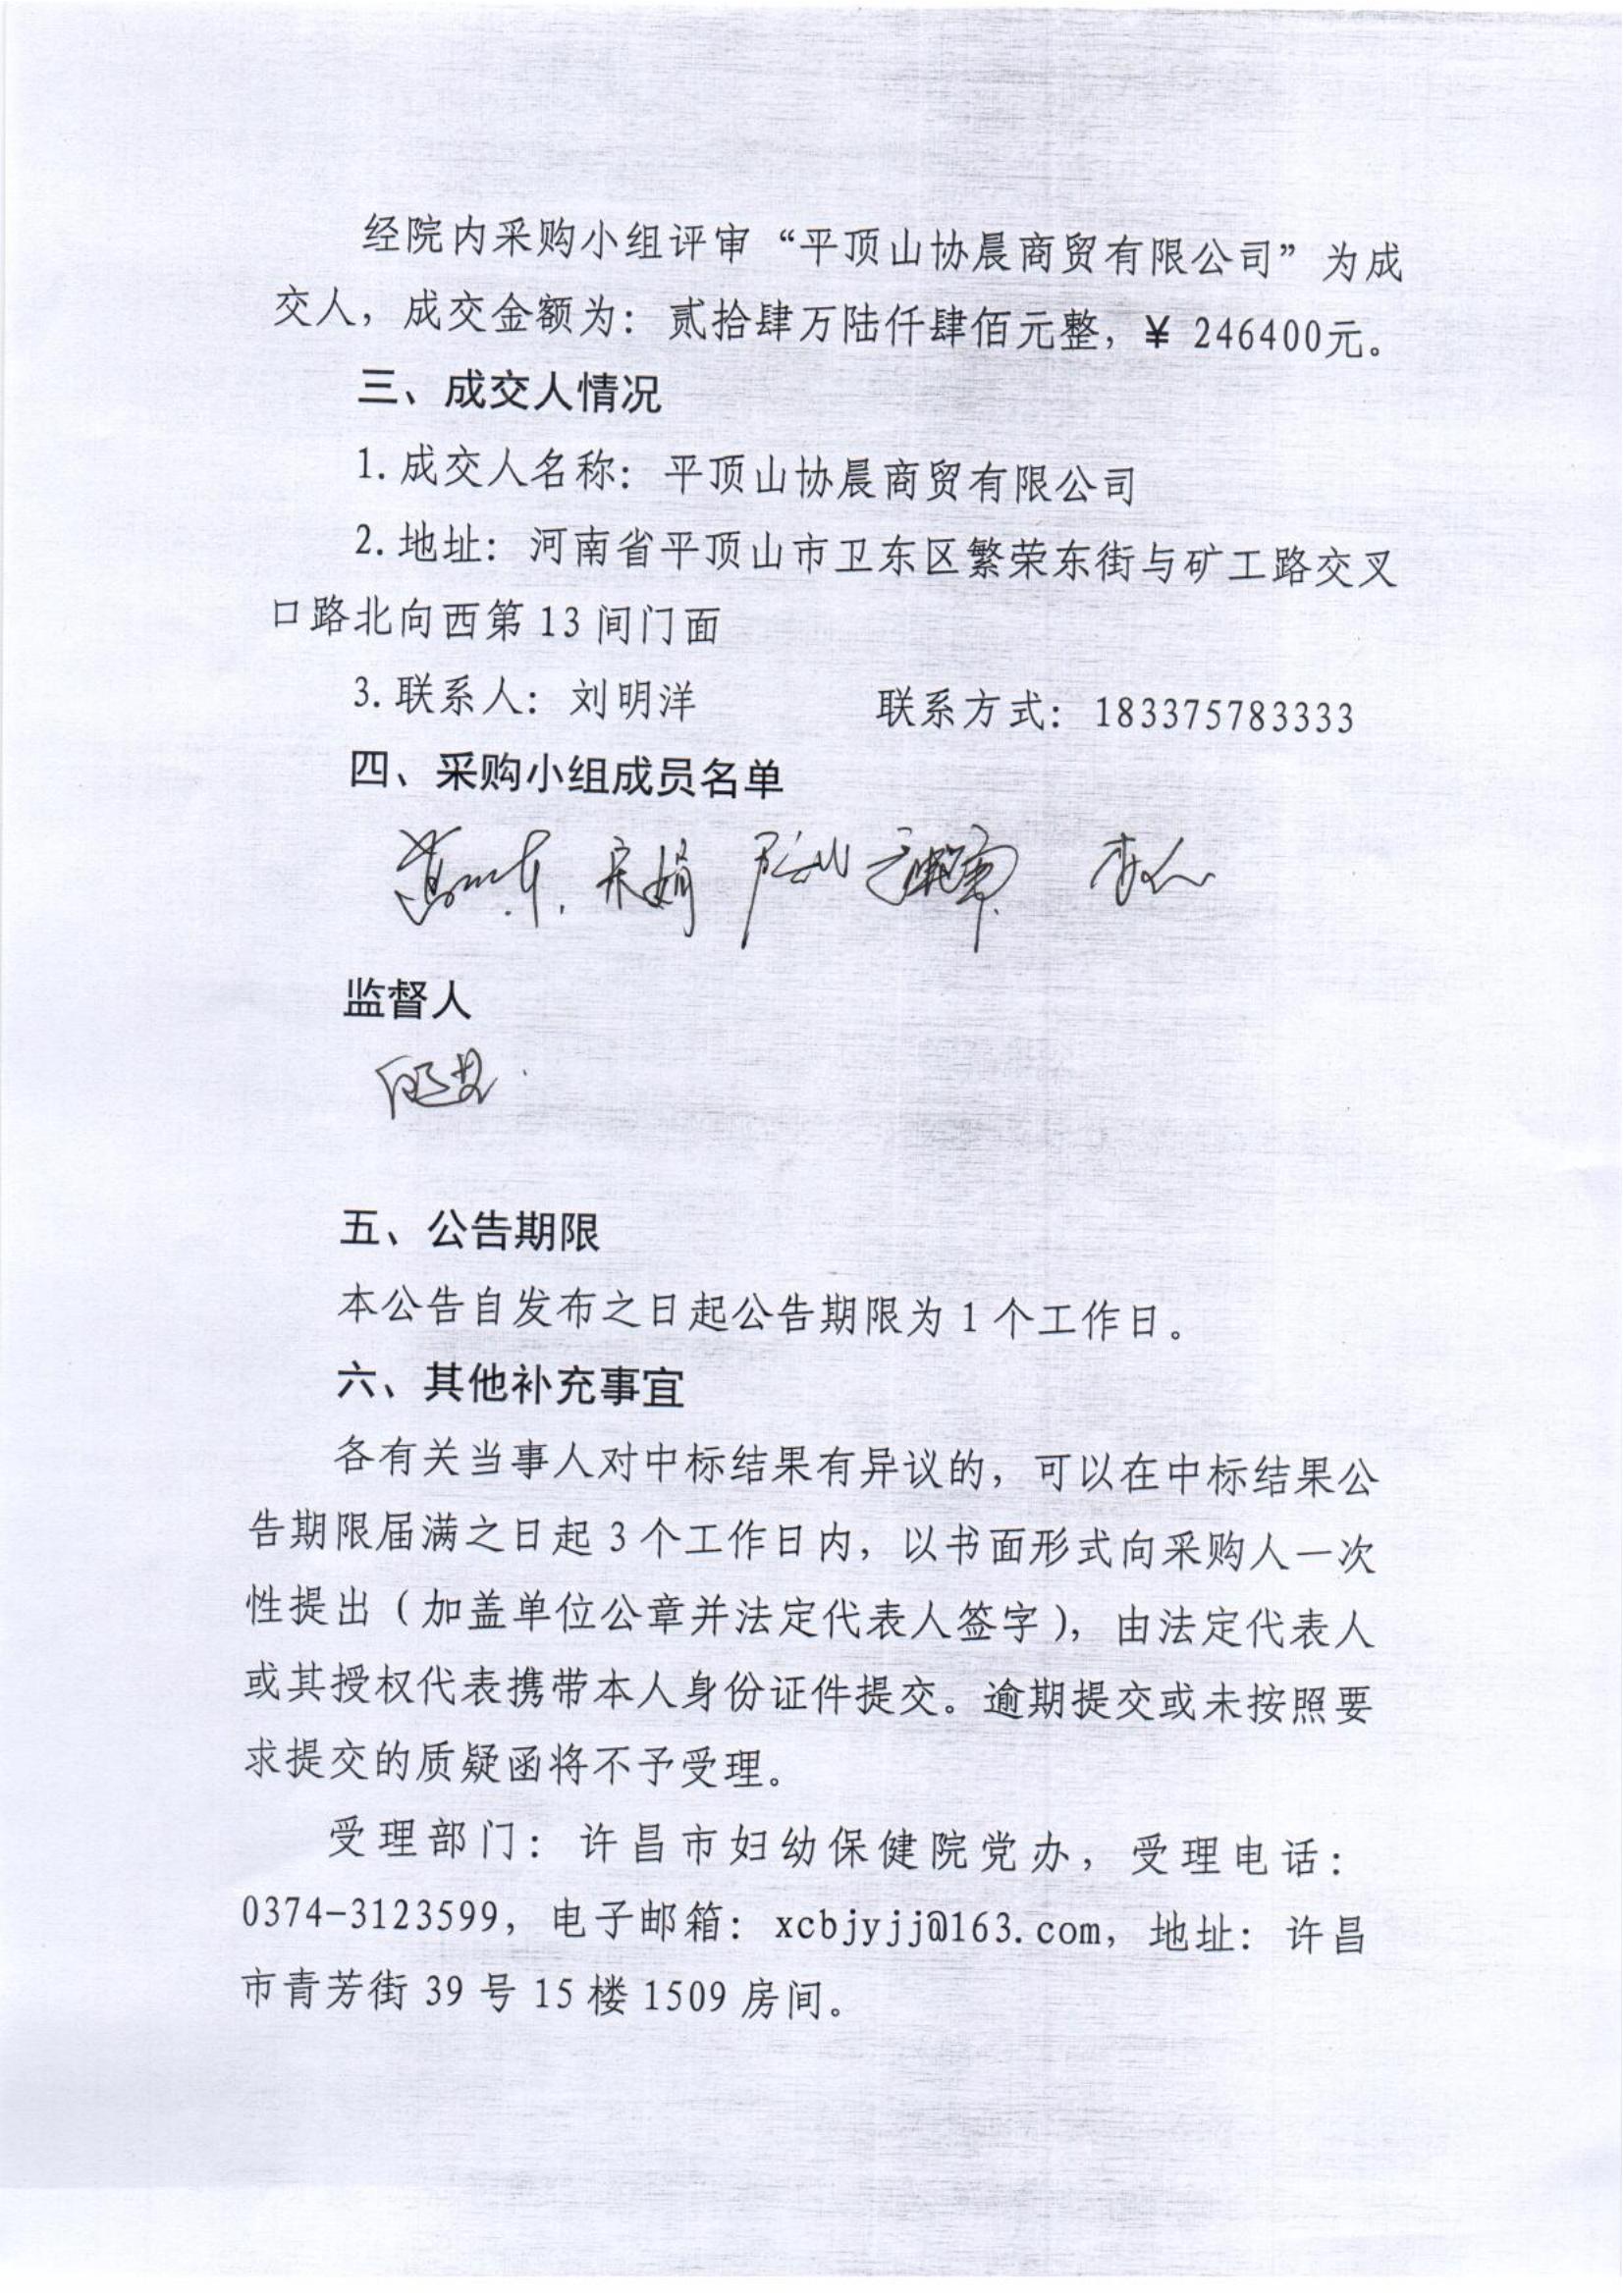 经院内采购小组评审“平顶山协晨商贸有限公司”为成
交人，成交金额为：贰拾肆万陆仟肆佰元整，￥ 246400元。
三、成交人情况
1.成交人名称：平顶山协晨商贸有限公司
2.地址：河南省平顶山市卫东区繁荣东街与矿工路交叉
口路北向西第 13 间门面
3.联系人：刘明洋 联系方式：183375783333
四、采购小组成员名单
宋娟
监督人
五、公告期限
本公告自发布之日起公告期限为 1 个工作日。
六、其他补充事宜
各有关当事人对中标结果有异议的，可以在中标结果公
告期限届满之日起 3 个工作日内，以书面形式向采购人一次
性提出（加盖单位公章并法定代表人签字），由法定代表人
或其授权代表携带本人身份证件提交。逾期提交或未按照要
求提交的质疑函将不予受理。
受理部门：许昌市妇幼保健院党办，受理电话：
0374-3123599，电子邮箱：xcbjyjj@163.com，地址：许昌
市青芳街 39 号 15 楼 1509 房间。